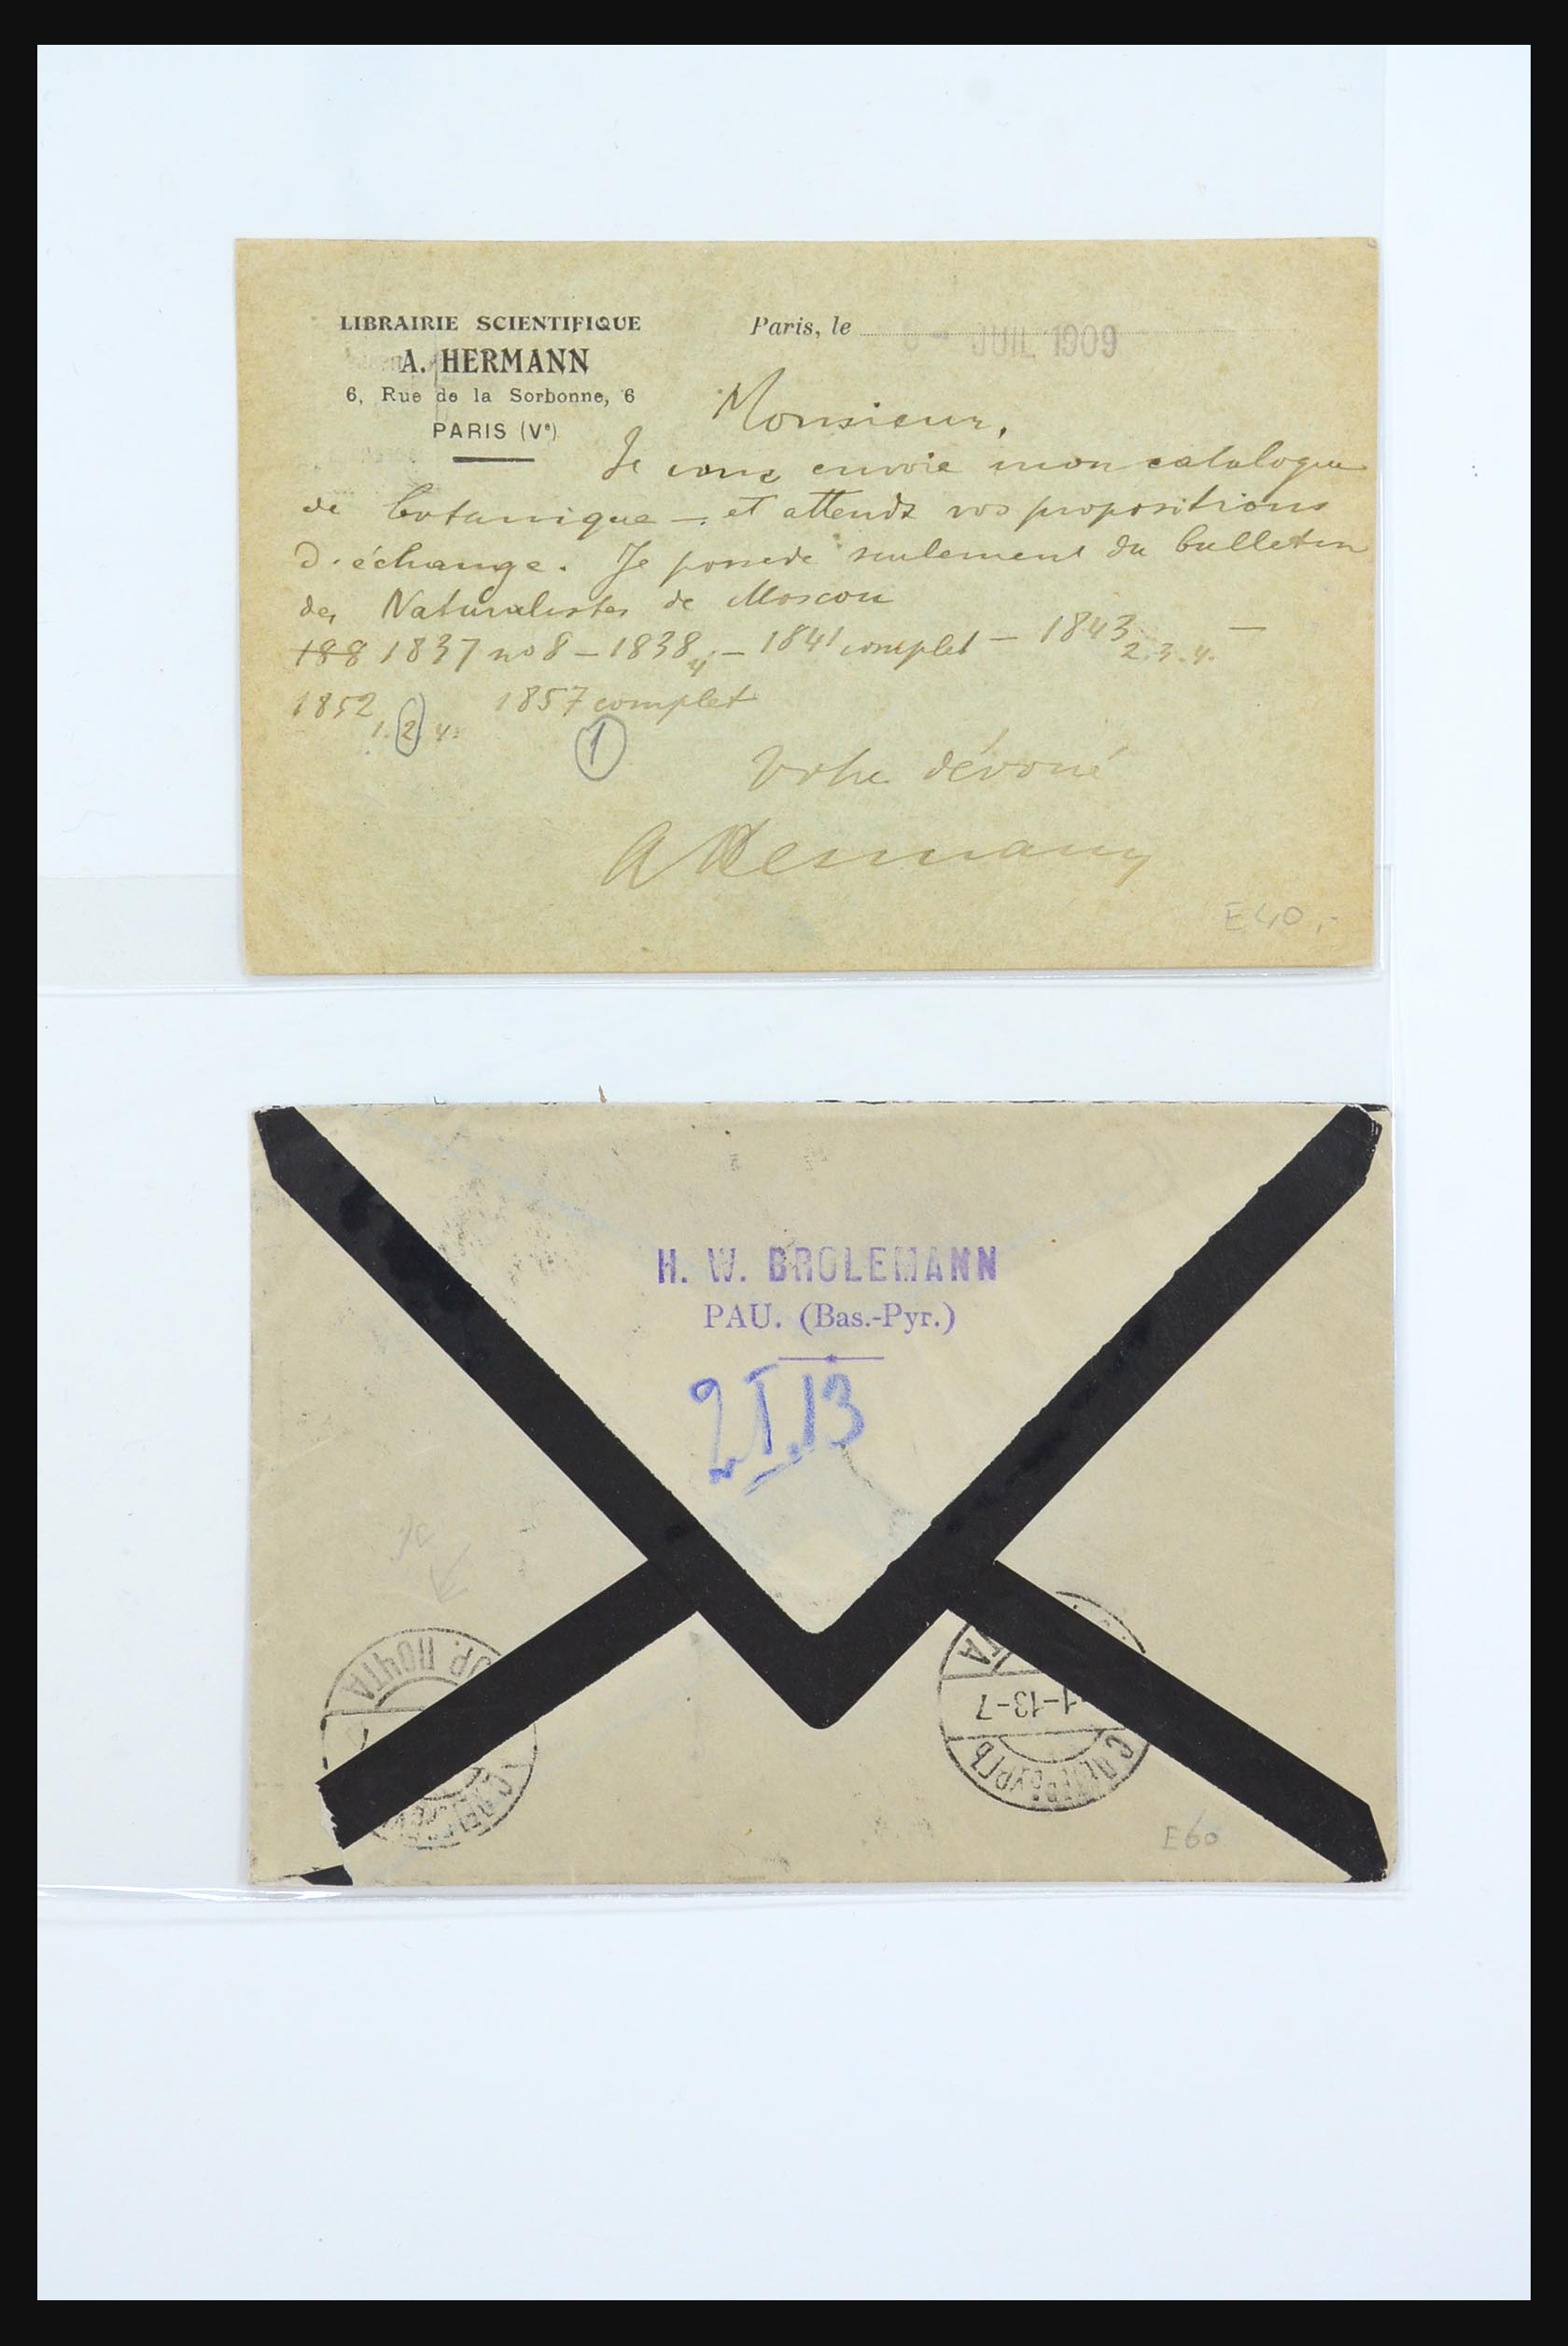 LIBRAIRIE SCIENTIFIQUE
A. HERMANN
6, Rue de la Sorbonne, 6
PARIS (Vᵉ)
Paris, le 8 - JUIL 1909
Monsieur,
Je vous envoie mon catalogue
de botanique — et attends vos propositions
d'échange. Je possede seulement du bulletin
des Naturalistes de Moscou
188 1837 no 8 — 1838 4 — 1841 complet — 1843 2.3.4. —
1852 1.2 4. 1857 complet
1
Votre dévoué
A Hermann
E40,-
H. W. BROLEMANN
PAU. (Bas.-Pyr.)
2 I.13
ПОЧТА
1-13-7
E60